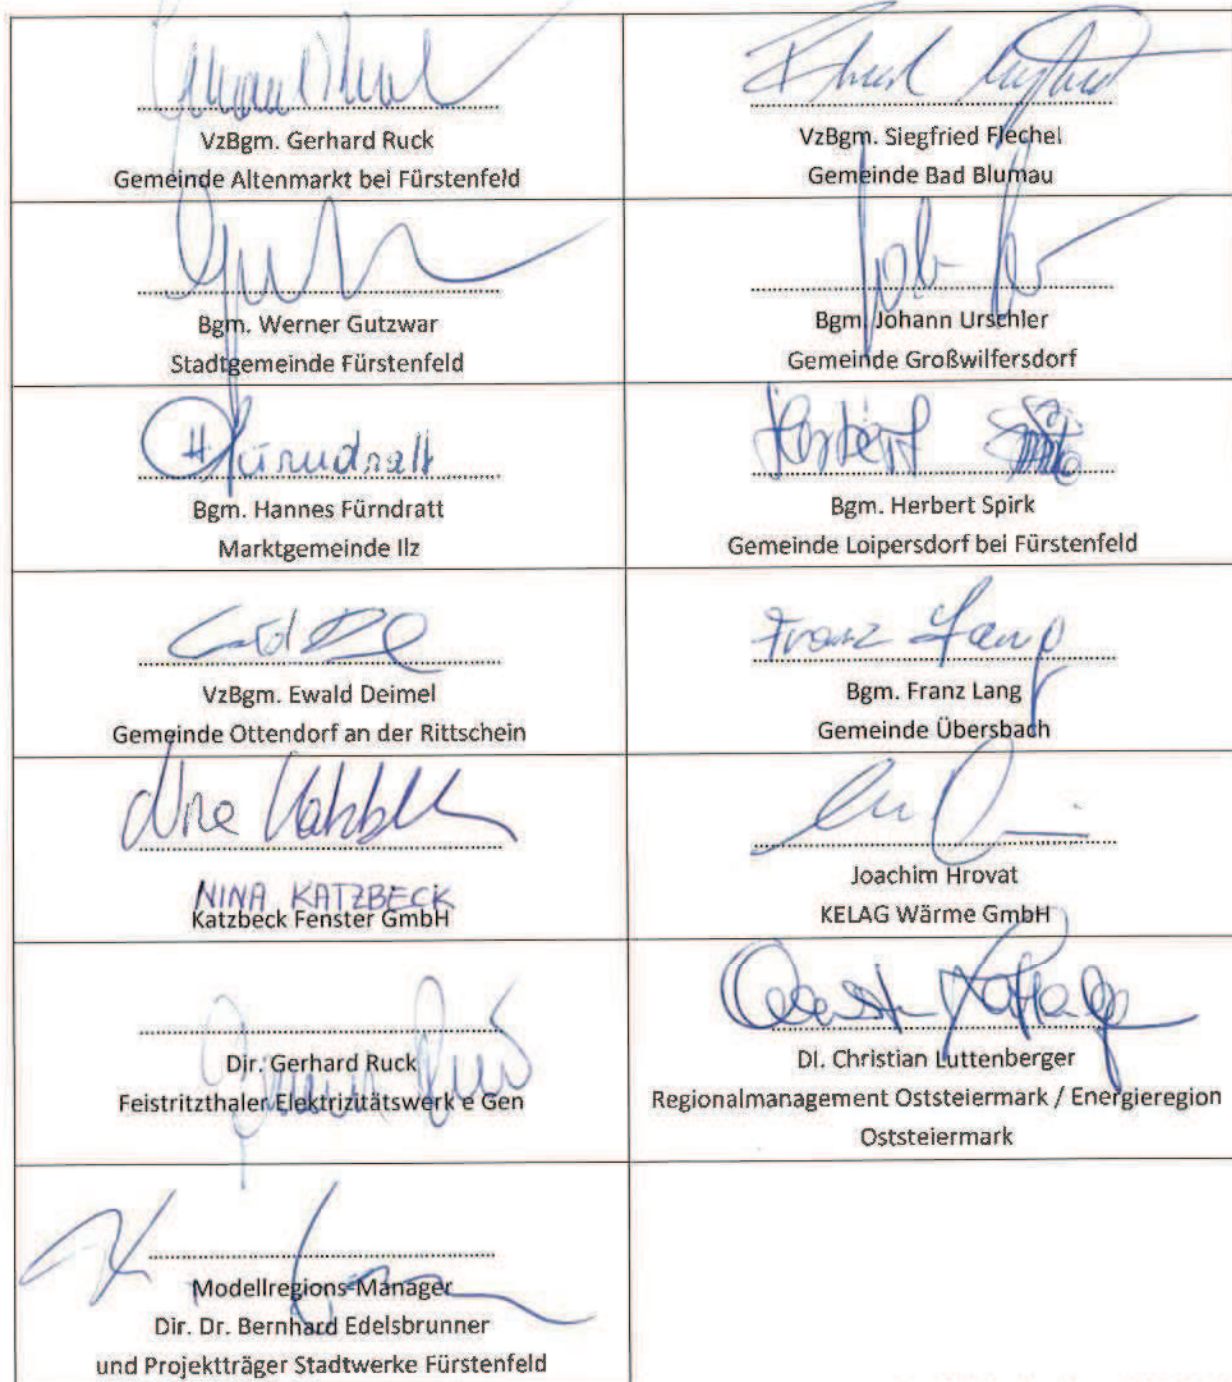 VzBgm. Gerhard Ruck
Gemeinde Altenmarkt bei Fürstenfeld
VzBgm. Siegfried Flechel
Gemeinde Bad Blumau
Bgm. Werner Gutzwar
Stadtgemeinde Fürstenfeld
Bgm. Johann Urschler
Gemeinde Großwilfersdorf
H Fürndratt
Bgm. Hannes Fürndratt
Marktgemeinde Ilz
Herbert
Bgm. Herbert Spirk
Gemeinde Loipersdorf bei Fürstenfeld
VzBgm. Ewald Deimel
Gemeinde Ottendorf an der Rittschein
Franz Lang
Bgm. Franz Lang
Gemeinde Übersbach
NINA KATZBECK
Katzbeck Fenster GmbH
Joachim Hrovat
KELAG Wärme GmbH
Dir. Gerhard Ruck
Feistritzthaler Elektrizitätswerk e Gen
DI. Christian Luttenberger
Regionalmanagement Oststeiermark / Energieregion
Oststeiermark
Modellregions-Manager
Dir. Dr. Bernhard Edelsbrunner
und Projektträger Stadtwerke Fürstenfeld